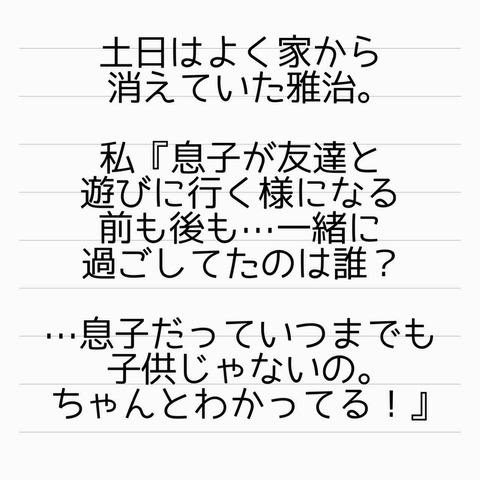 土日はよく家から
消えていた雅治。
私『息子が友達と
遊びに行く様になる
前も後も…一緒に
過ごしてたのは誰？
…息子だっていつまでも
子供じゃないの。
ちゃんとわかってる！』